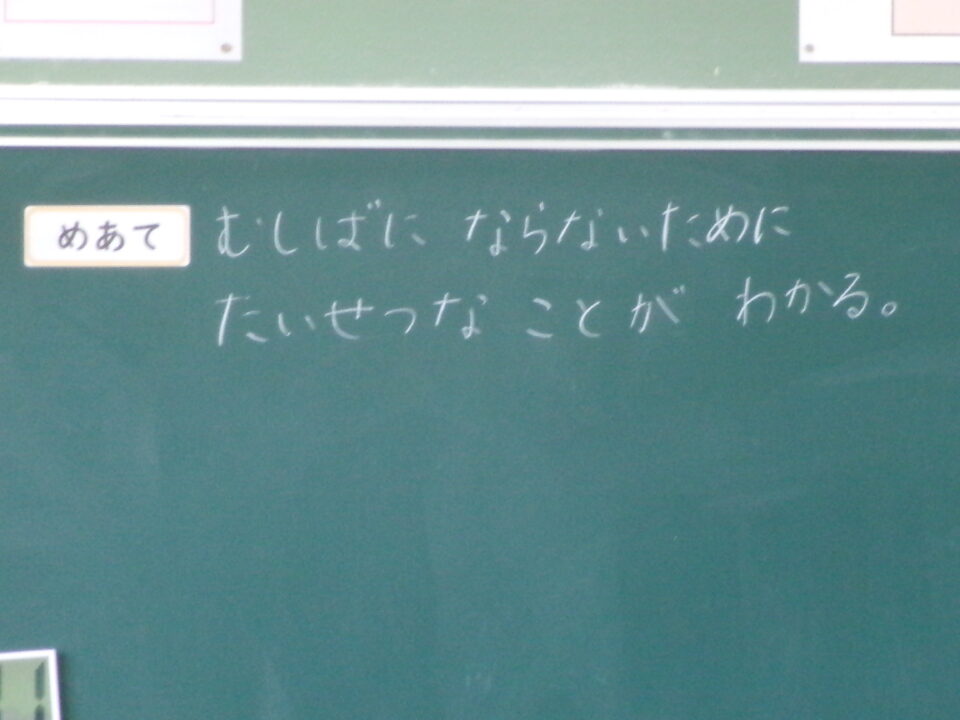 めあて むしばに ならないために
たいせつな ことが わかる。